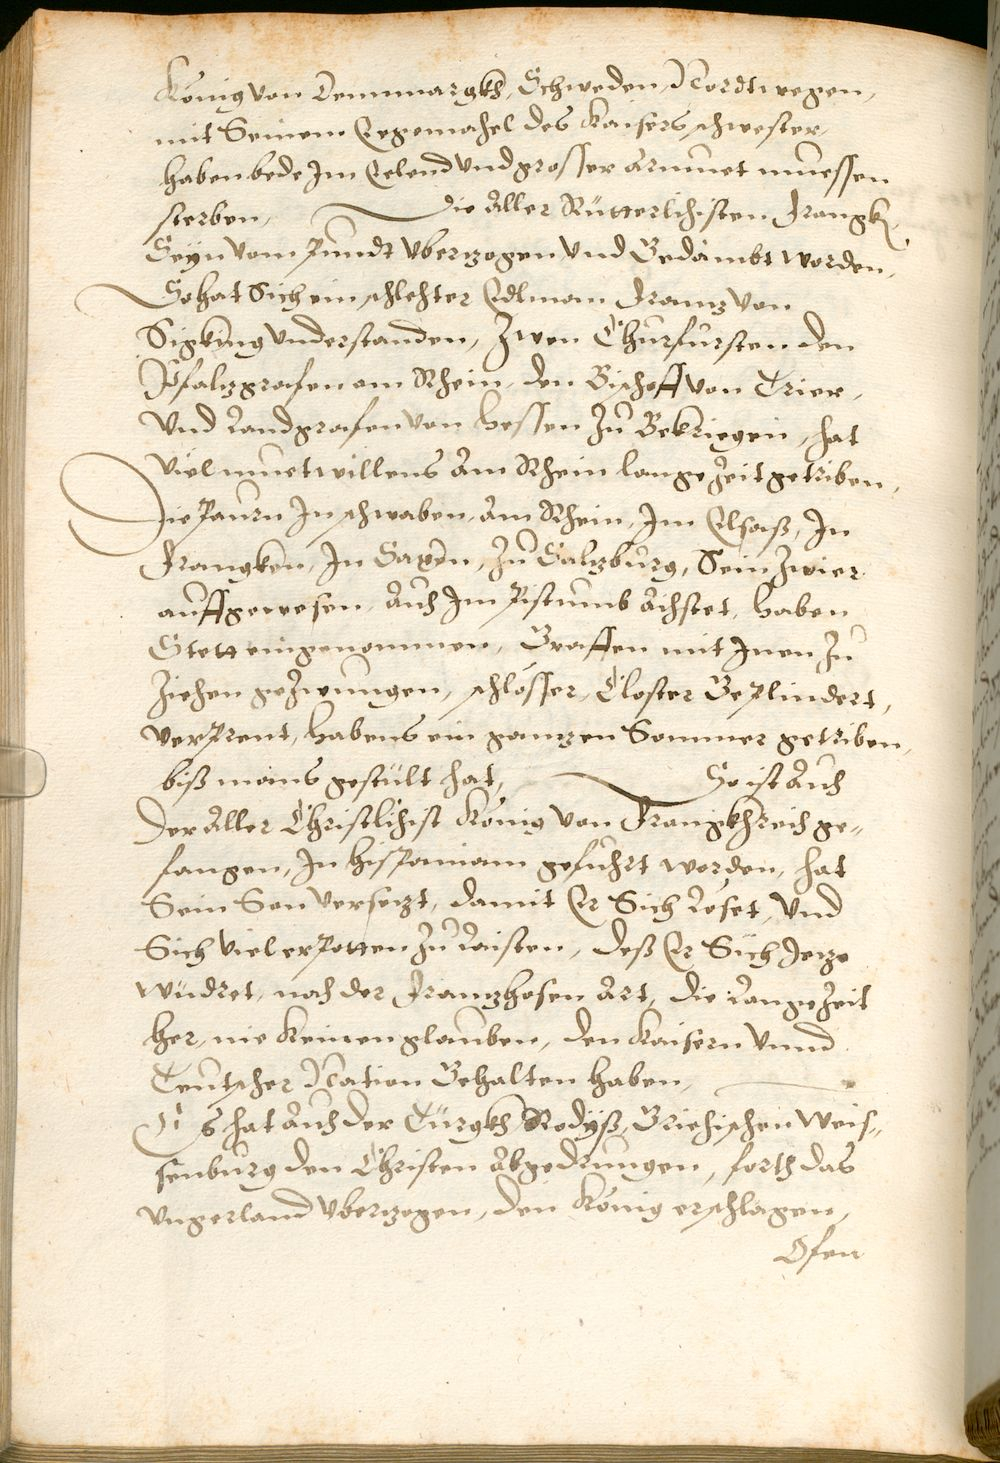 König von Denmmargkh, Schweden, Nordtwegen,
mit Seinem Eegemahel des Kaisers schwester,
haben bede Im Eelend vnd grosser Armuet muessen
sterben, Die Aller Rütterlichisten Frangkh,
Seyn vom Pundt vberzogen vnd Gedämbt worden,
So hat Sich ein schlehter Edlman Frannz von
Sigking vnderstanden, Zwen Churfursten den
Pfalzgrafen am Rhein, den Bischoff von Trier,
vnd Landgrafen von Hessen Zu Bekriegen, hat
viel muetwillens Am Rhein lange Zeit getriben,
Die Paurn In schwaben, Am Rhein, Im Elsaß, In
Frangken, In Saxen, Zu Salzburg, Sein Zwier
auffgewesen, Auch Im Pistumb Aichstet, Haben
Stett eingenommen, Graffen mit Inen Zu
Ziehen gezwungen, schlösser, Clöster Geplindert,
verprent, Habens ein ganzen Sommer getriben,
biß mans gestült hat, So ist Auch
Der Aller Christlichist König von Frangkhreich ge-
fangen, In Hispaniam gefuhrt worden, hat
Sein Son versezt, damit Er Sich Löset, vnd
Sich viel erpotten Zu Laisten, deß Er Sich Jeze
widret, nach der Franzhosen Art, die Lange Zeit
her, nie keinen glauben, den Kaisern vnnd
Teutscher Nation Gehalten haben,
Es hat Auch der Türgkh Rodyß, Griechischen Weis-
senburg den Christen Abgedrungen, forth das
vngerland vberzogen, den König erschlagen,
Ofen